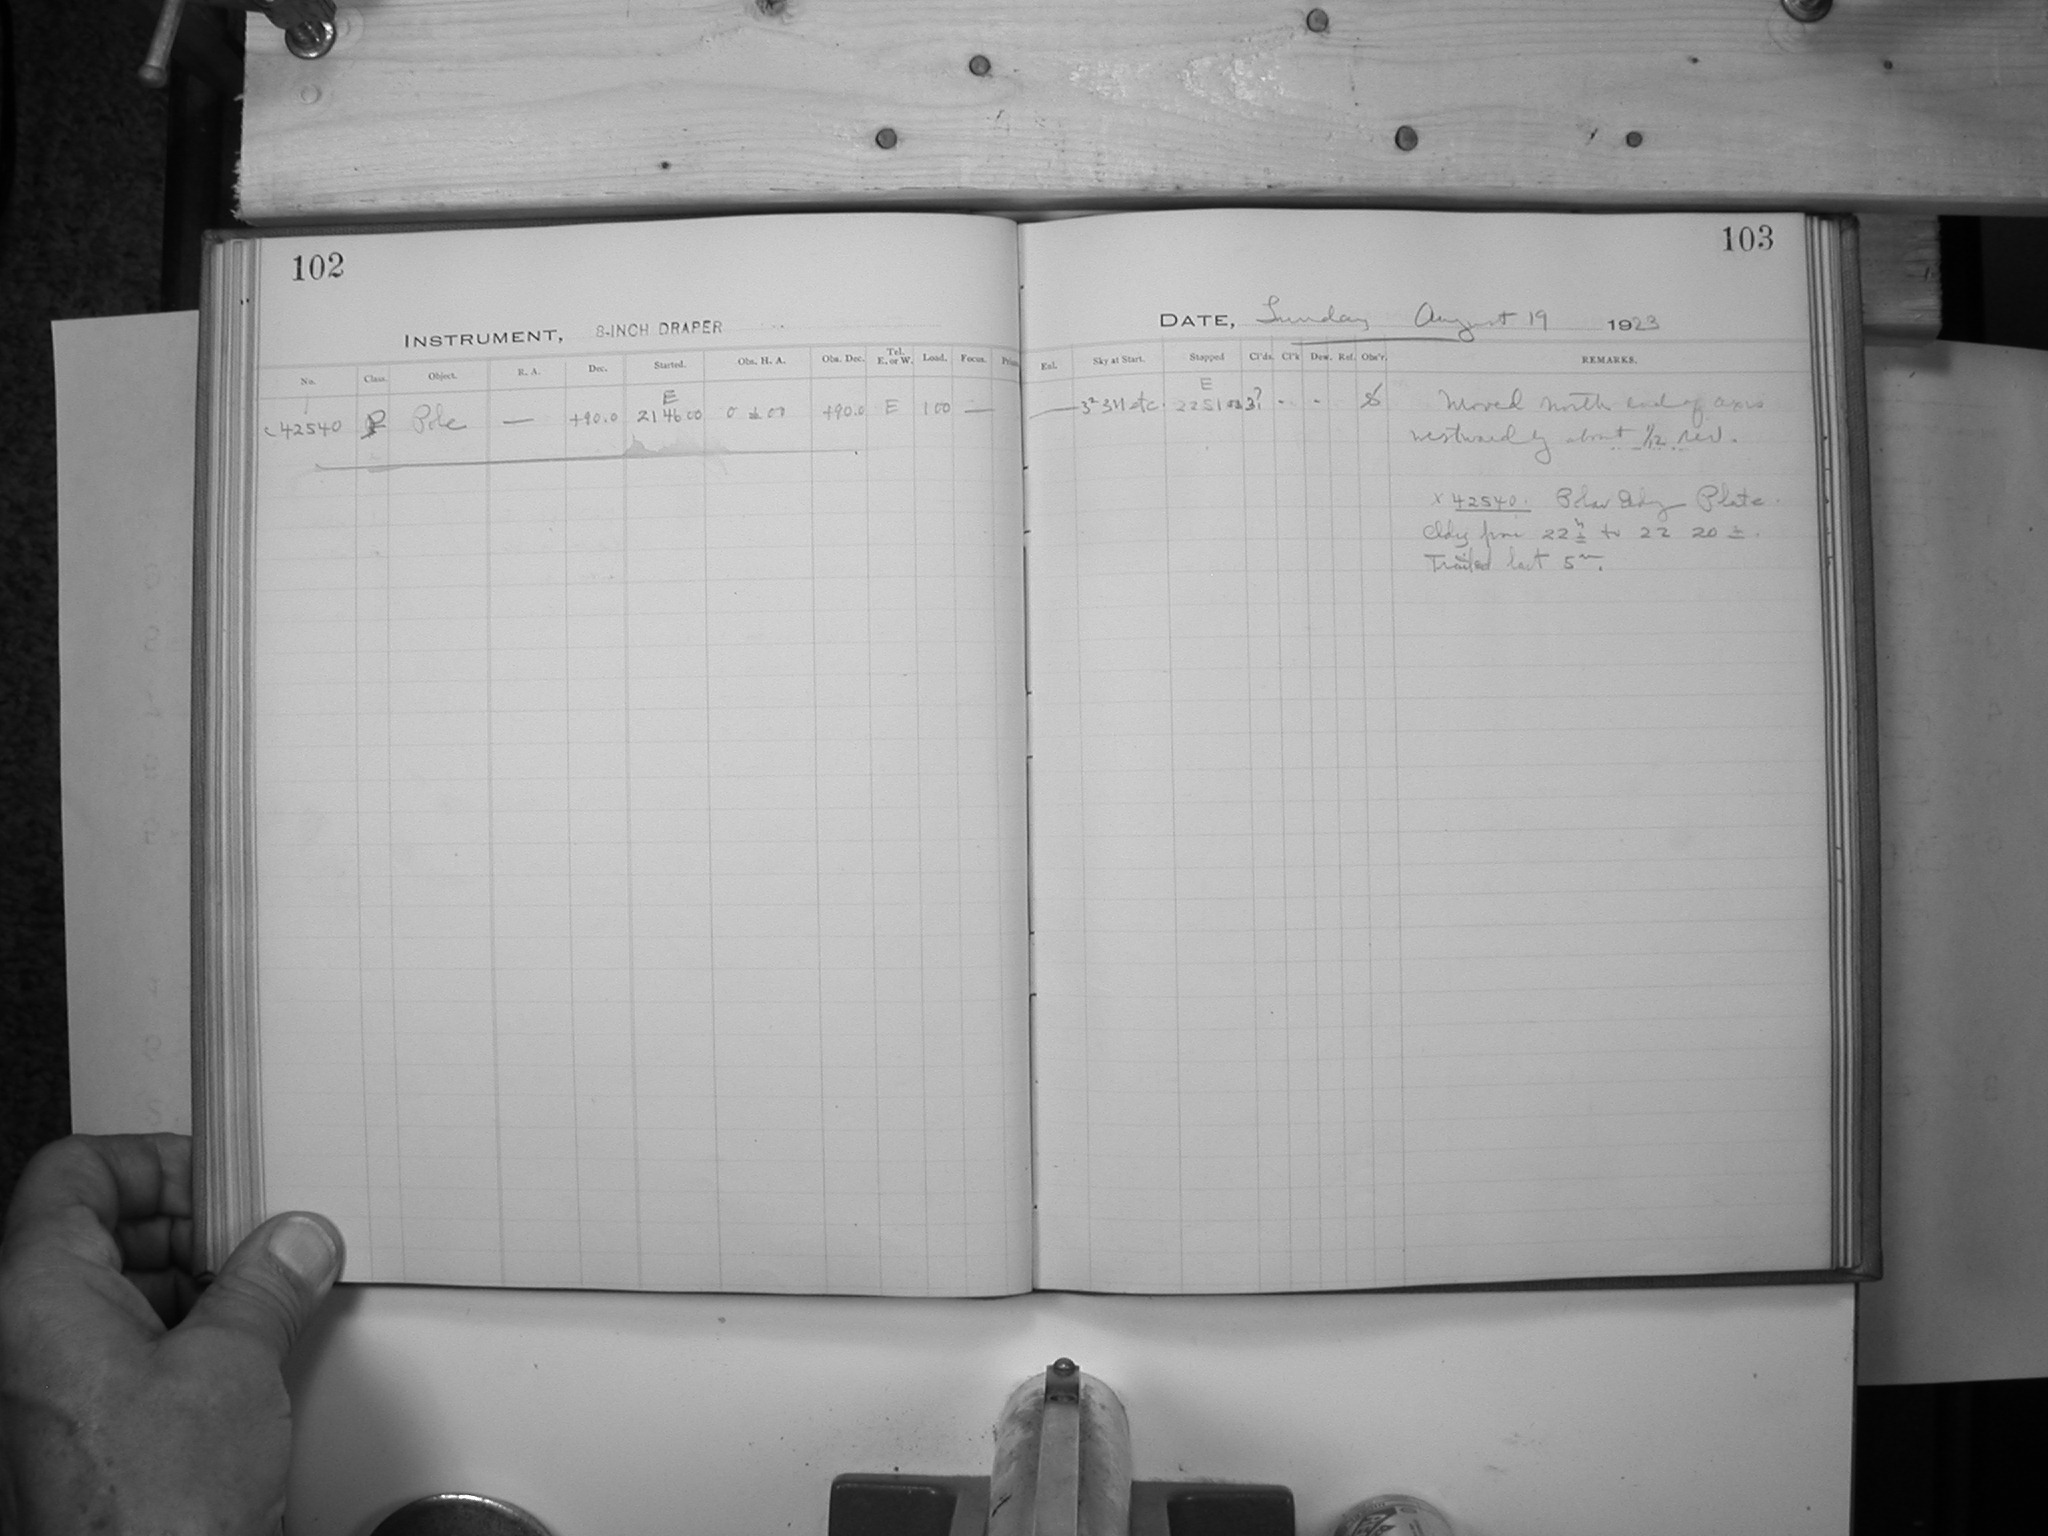 102
103
INSTRUMENT, 8-INCH DRAPER
DATE, Sunday August 19 1923
No. Class. Object. R. A. Dec. Started. Obs. H. A. Obs. Dec. Tel. E. or W. Load. Focus.
Enl. Sky at Start. Stopped Cl'ds. Cl'k Dew. Ref. Obs'r. REMARKS.
E
E
42540 P Pole — +90.0 21 46 00 +90.0 E 100 —
22 51 3?
Moved north end of axis
westwardly about 1/12 rev.
x 42540. Polar Plate.
Cldy from 22 h ± to 22 20 ±.
Trailed last 5 m.